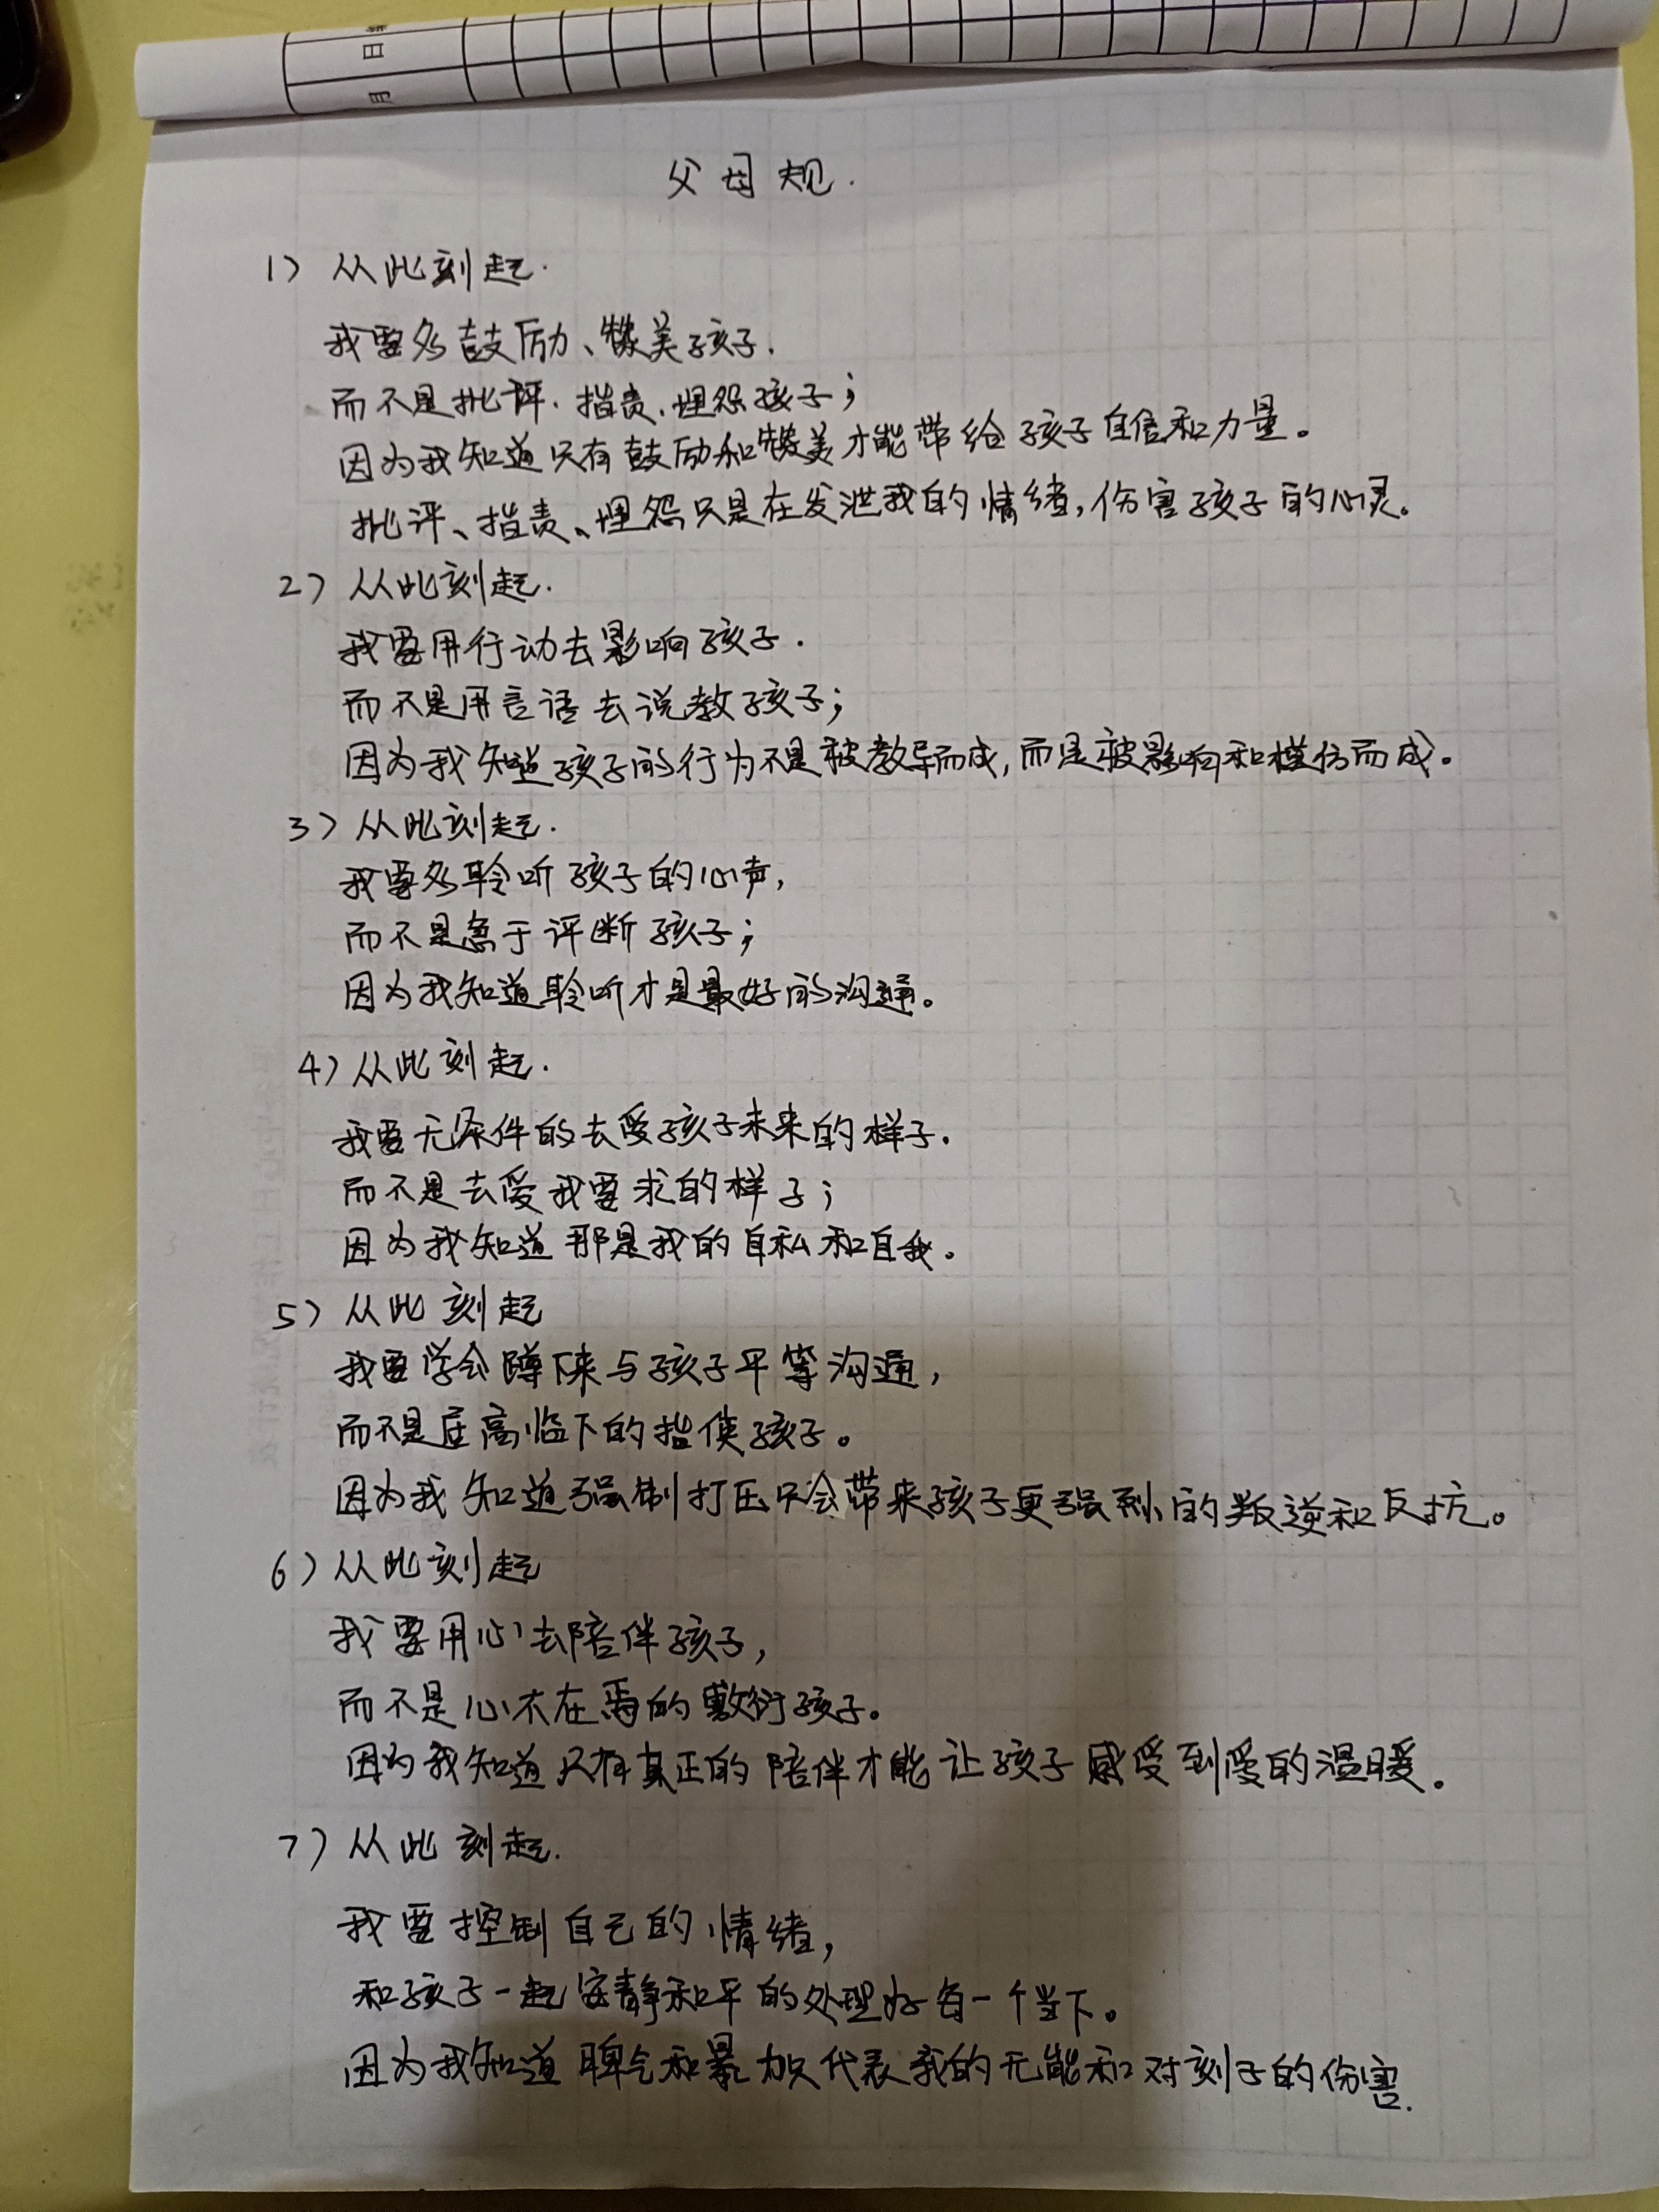 父母规.
1) 从此刻起.
我要多鼓励、赞美孩子.
而不是批评.指责.埋怨孩子;
因为我知道只有鼓励和赞美才能带给孩子自信和力量。
批评、指责、埋怨只是在发泄我的情绪,伤害孩子的心灵。
2) 从此刻起.
我要用行动去影响孩子.
而不是用言语去说教孩子;
因为我知道孩子的行为不是被教导而成,而是被影响和模仿而成。
3) 从此刻起.
我要多聆听孩子的心声,
而不是急于评断孩子;
因为我知道聆听才是最好的沟通。
4) 从此刻起.
我要无条件的去爱孩子未来的样子.
而不是去爱我要求的样子;
因为我知道那是我的自私和自我。
5) 从此刻起
我要学会蹲下来与孩子平等沟通,
而不是居高临下的指使孩子。
因为我知道强制打压只会带来孩子更强烈的叛逆和反抗。
6) 从此刻起
我要用心去陪伴孩子,
而不是心不在焉的敷衍孩子。
因为我知道只有真正的陪伴才能让孩子感受到爱的温暖。
7) 从此刻起.
我要控制自己的情绪,
和孩子一起安静和平的处理好每一个当下。
因为我知道脾气和暴力只代表我的无能和对刻子的伤害.